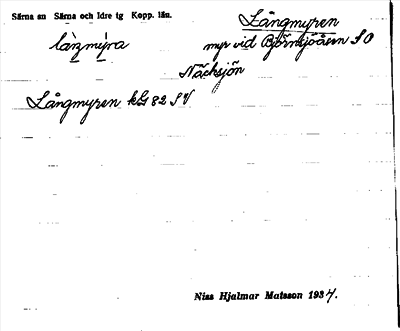 Särna sn Särna och Idre tg Kopp. län.
Långmyren
myr vid Björnsjöåsen S O
Näcksjön
Långmyren kG 82 S V
Niss Hjalmar Matsson 1934.